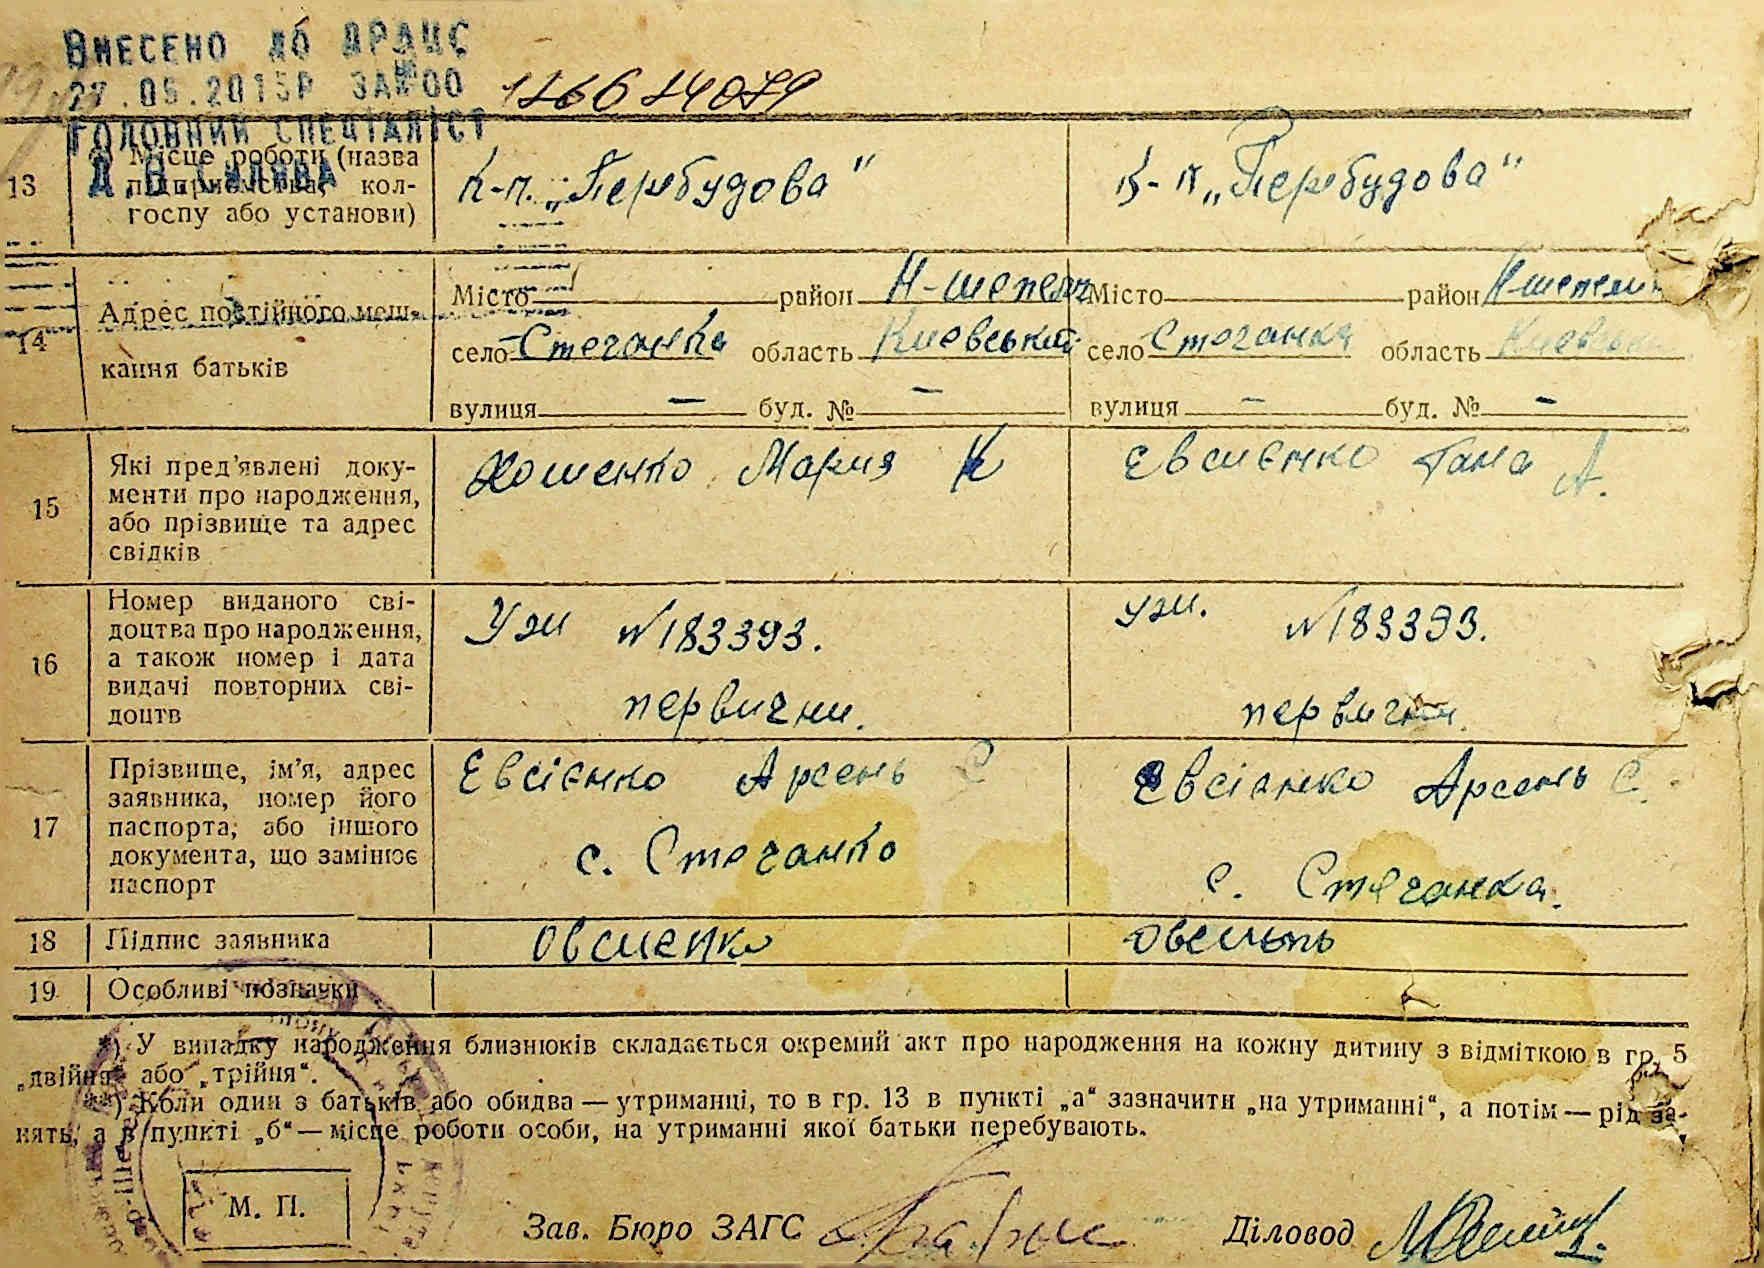 Внесено до ДРАЦС
27.05.2015р за №00 12661407
Головний спеціаліст
13 Місце роботи (назва підприємства, кол-
госпу або установи)
к-п. „Перебудова“ к-п „Перебудова“
14 Адрес постійного меш-
кання батьків
Місто район Н-шепели Місто район Н-шепели
село Стечанка область Киевський село Стечанка область Киевськ
вулиця — буд. № — вулиця — буд. № —
15 Які пред’явлені доку-
менти про народження,
або прізвище та адрес
свідків
Хошенко Мария К Евсиенко Гана А.
16 Номер виданого сві-
доцтва про народження,
а також номер і дата
видачі повторних сві-
доцтв
Уэи №183393. уэи. №183393.
первични. первични.
17 Прізвище, ім’я, адрес
заявника, номер його
паспорта, або іншого
документа, що замінює
паспорт
Евсієнко Арсень С Евсієнко Арсень С.
с. Стечанка с. Стечанка.
18 Підпис заявника Овсиенко
19 Особливі позначки
*) У випадку народження близнюків складається окремий акт про народження на кожну дитину з відміткою в гр. 5
„двійня“ або „трійня“.
**) Коли один з батьків або обидва — утриманці, то в гр. 13 в пункті „а“ зазначити „на утриманні“, а потім — рід за-
нять, а в пункті „б“ — місце роботи особи, на утриманні якої батьки перебувають.
М. П.
Зав. Бюро ЗАГС Діловод